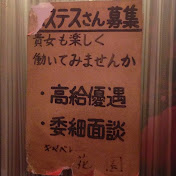 ステスさん募集
貴女も楽しく
働いてみませんか
・高給優遇
・委細面談